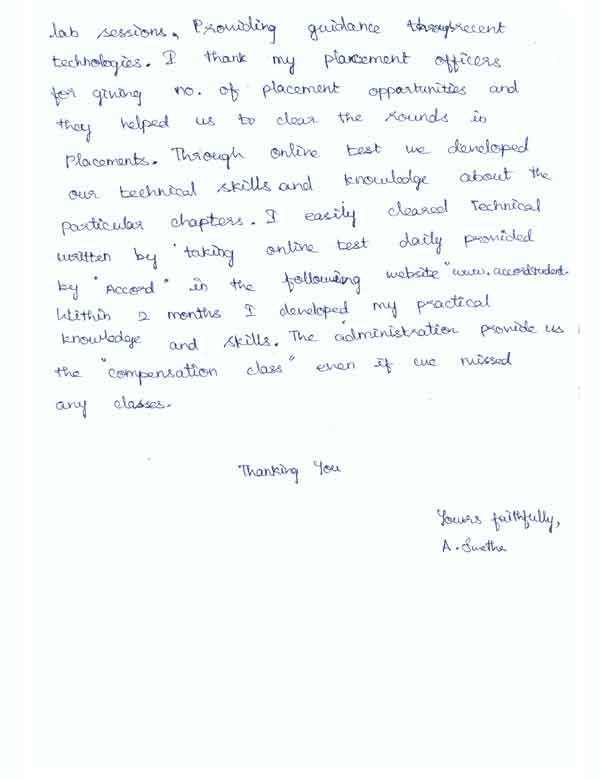 lab sessions. Providing guidance through recent
technologies. I thank my placement officers
for giving no. of placement opportunities and
they helped us to clear the rounds in
Placements. Through online test we developed
our technical skills and knowledge about the
particular chapters. I easily cleared Technical
written by "taking online test daily provided
by "Accord" in the following website "www.accordstudent.
Within 2 months I developed my practical
knowledge and skills. The administration provide us
the "compensation class" even if we missed
any classes.
Thanking You
Yours faithfully,
A. Swetha